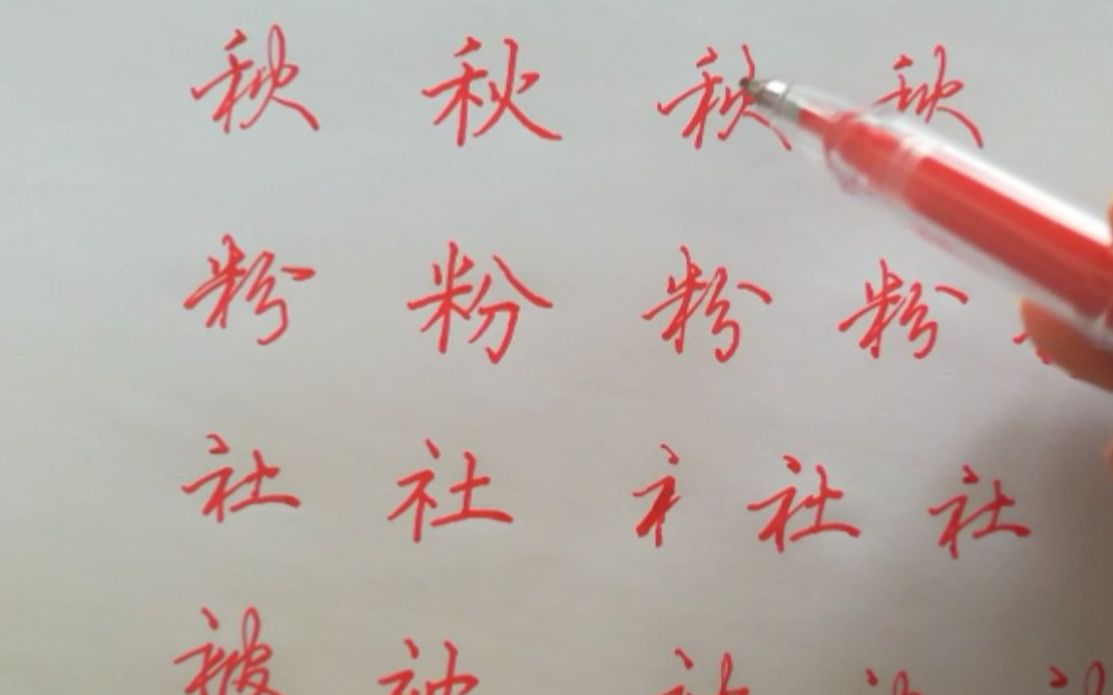 秋 秋 秋 秋
粉 粉 粉 粉
社 社 礻 社 社
被 被